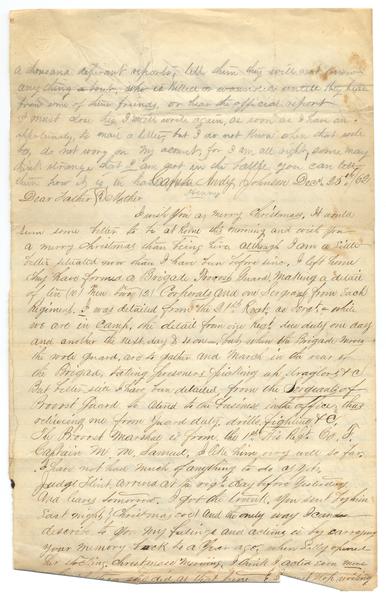 a thousand different reports, tell them they will not know
anything about who is killed or wounded untill they hear
from some of their friends, or hear the official report
I must close by I will write again, as soon as I can have
opportunity, to mail a letter, but I do not know when that will
be, do not worry on my account, for I am all right, some may
think strange that I am not in the battle, you can tell
them how it is
Camp Andy Johnson Dec. 25th /62
Dear Father & Mother
I wish you a merry Christmas. It would
seem some better to be at home this morning and wish you
a merry Christmas than being here although I am a little
better situated now than I have been before since I left home
They have formed a Brigade Provost Guard, making a detail
of ten (10) men two (2) Corporals and one Sergeant from each
regiment. I was detailed from the 21st Regt. as Sergt. while
we are in camp, the detail from one Regt. does duty one day
and another the next day & so on, but when the Brigade moves
the whole guard, are to gather and march in the rear of
the Brigade, taking prisoners picking up straglers &c
But better still I have been detailed from the Brigade
Provost Guard to attend to the business in the office, thus
relieving me from Guard duty, drills, fighting &c.
The Provost Marshal is from the 1st Regt. Co.
Captain M. M. Samuel, I like him very well so far.
I have not had much of anything to do as yet.
Judge Flint arrived at the regt. day before yesterday
and leaves tomorrow. I got the you sent by him
last night, Christmas eve and the only way I can
describe to you my feelings and acting is by carrying
your memory back to a year ago, when Lilly opened
her stocking Christmas morning. I think I acted even more
she did at that time